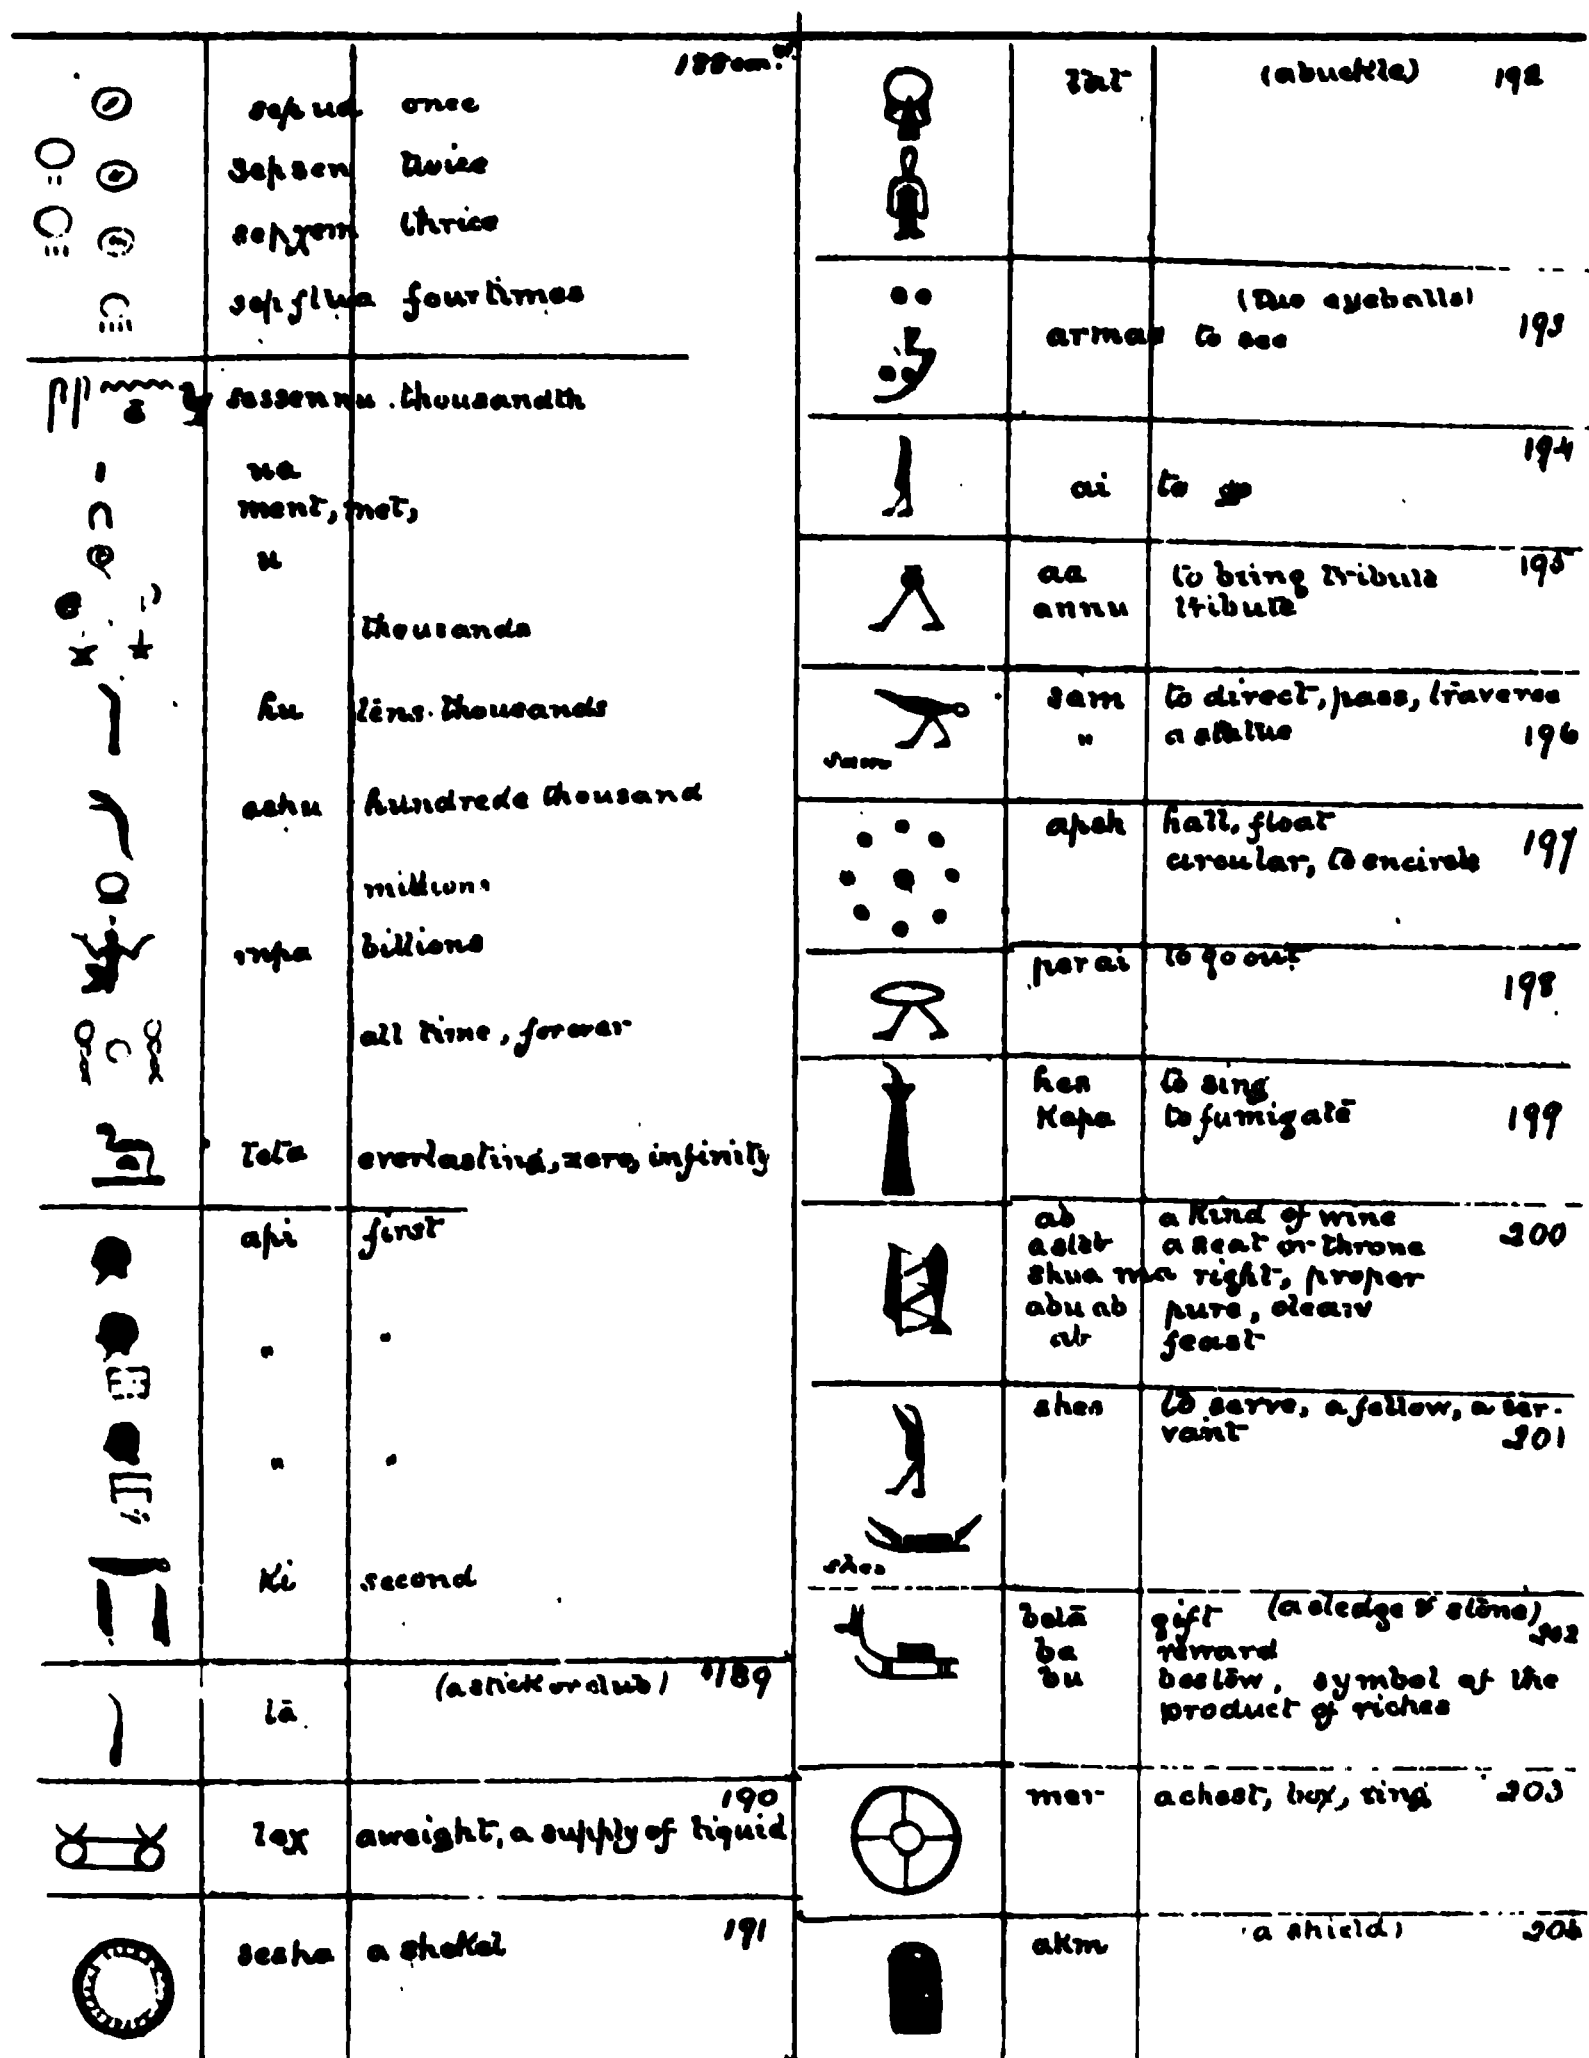 188 con.
sep ua once
sepsen twice
sepχem thrice
sepftua four times
sessennu . thousandth
ua
ment, met,
u
thousands
hu tens. thousands
ashu hundrede thousand
millions
billions
all time, forever
teta everlasting, zero, infinity
api first
" "
" "
Ki second
(a stick or club) 189
tā
190
teχ a weight, a supply of liquid
191
sesha a shekel
tat (a buckle) 192
(two eyeballs)
armas to see 193
194
ai to go
aa to bring tribute 195
annu tribute
sam to direct, pass, traverse
" a statue 196
sam
apsh hall, float
circular, to encircle 197
per ai to go out
198
hes to sing
Kapa to fumigate 199
ab a kind of wine
astet a seat or throne 200
shua ma right, proper
abu ab pure, clean
ab feast
shes to serve, a fellow, a ser-
vant 201
shes
betā gift (a sledge & stone) 202
ba reward
bu bestow, symbol of the
product of riches
mer a chest, box, ring 203
akm (a shield) 204